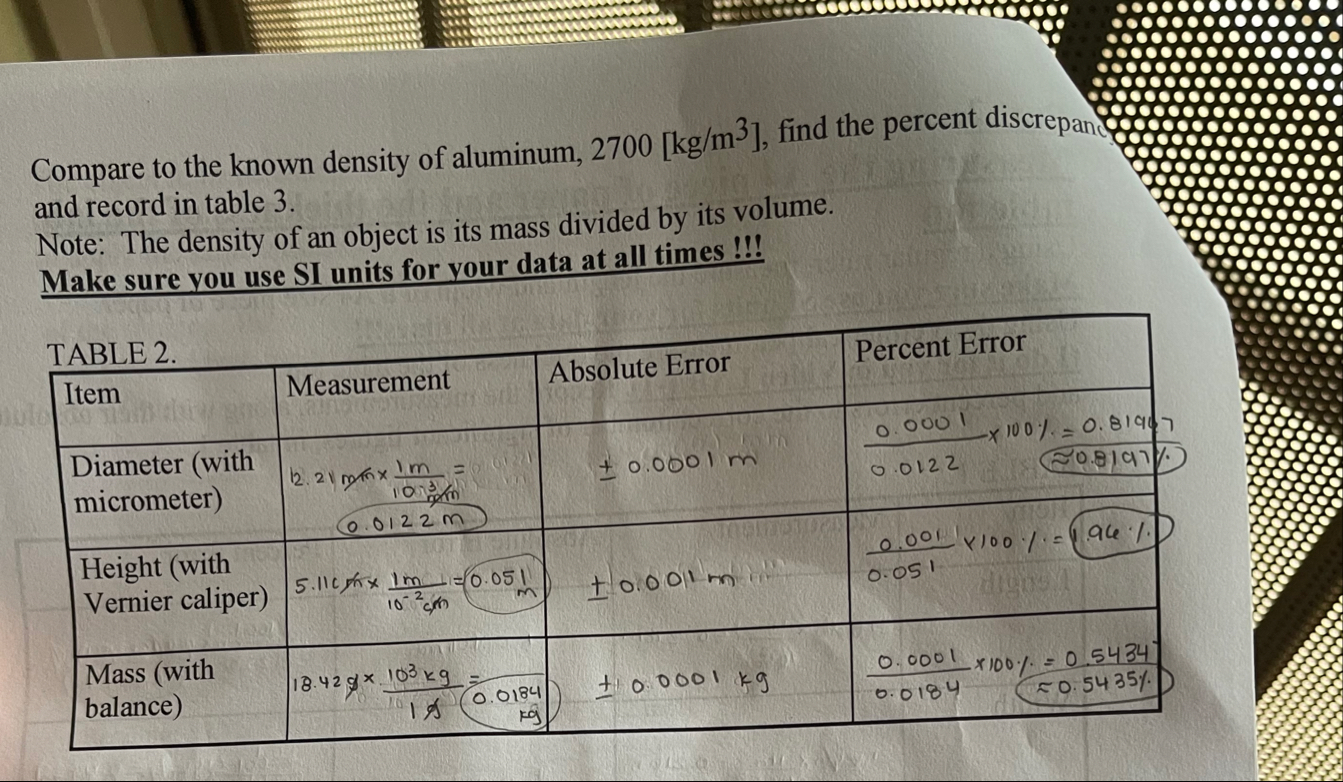 Compare to the known density of aluminum, 2700 [kg/m³], find the percent discrepanc
and record in table 3.
Note: The density of an object is its mass divided by its volume.
Make sure you use SI units for your data at all times !!!
TABLE 2.
Item Measurement Absolute Error Percent Error
Diameter (with micrometer) 12.21 mm × 1m / 10^-3 mm = 0.0122 m ± 0.0001 m 0.0001 / 0.0122 × 100% = 0.81967 ≈0.8197%
Height (with Vernier caliper) 5.11cm × 1m / 10^-2 cm = 0.051 m ± 0.001 m 0.001 / 0.051 × 100% = 1.96%
Mass (with balance) 18.42g × 10^3 kg / 1g = 0.0184 kg ± 0.0001 kg 0.0001 / 0.0184 × 100% = 0.5434 ≈0.5435%